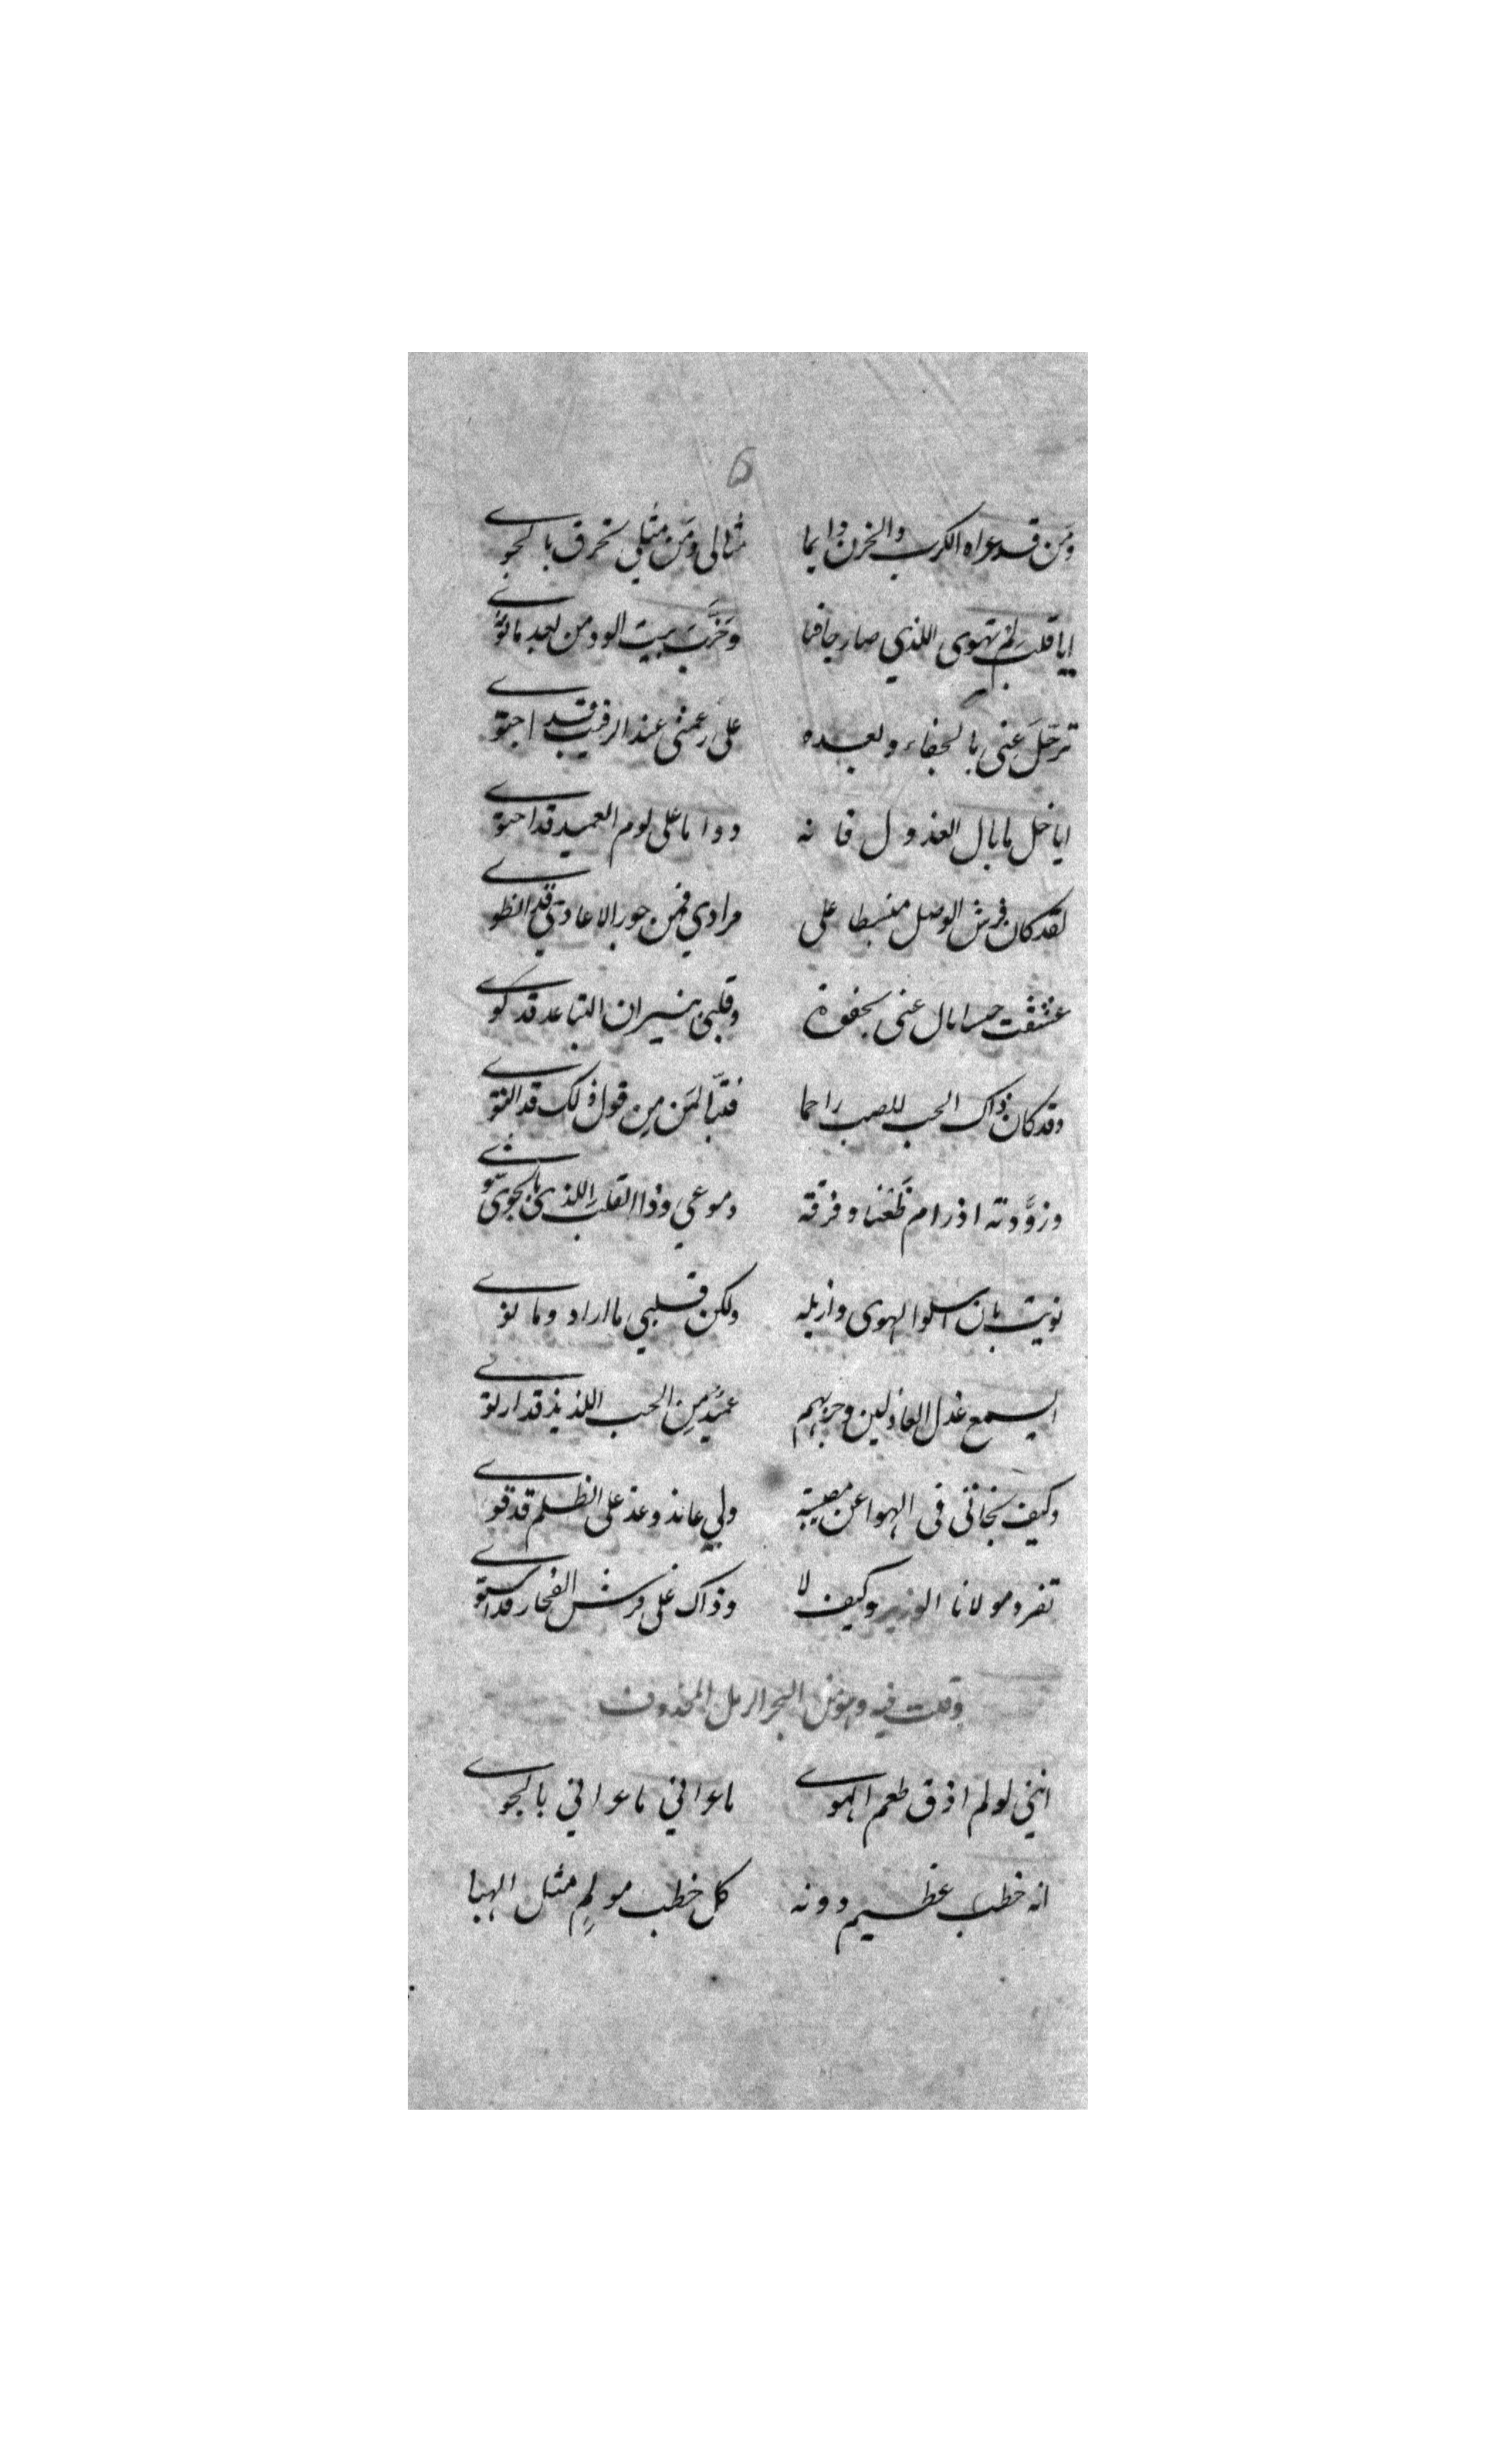 6
ومن قد عراه الكرب والحزن دايما مثالى ومن مثلي تحرق بالجوى
ايا قلب لم تهوى اللذي صار جافيا وخرب بيت الود من بعد ما
ترحل عنى بالجفاء وبعده على رغمى عند الرقيب قد احتوى
ايا خل ما بال العذول فانه دواما على لوم العميد قد احتوى
لقد كان فرش الوصل منبسطا على مرادي فمن جور الاعادي قد انطوى
عشقت مال عنى بجفوة وقلبى بنيران التباعد قد كوى
وقد كان ذاك الحب للصب راحما فتبا لمن من قول ذلك قد
وزودته اذ رام ظعنا وفرقه دموعي وذا القلب اللذي بالجوى
نويت بان اسلوا الهوى وازيله ولكن قلبي ما اراد وما نوى
ايسمع عذل العاذلين وحربهم عميد من الحب اللذيذ قد ارتوى
وكيف نجاتى فى الهوا عن مصيبة ولي عاند وغد على الظلم قد قوى
تفرد مولانا الوزير وكيف لا وذاك على فرش الفخار قد استوى
وقلت فيه وهو من البحر الرمل المحذوف
اننى لو لم اذق طعم الهوى ما عراني ما عراني بالجوى
انه خطب عظيم دونه كل خطب مولم مثل الهبا